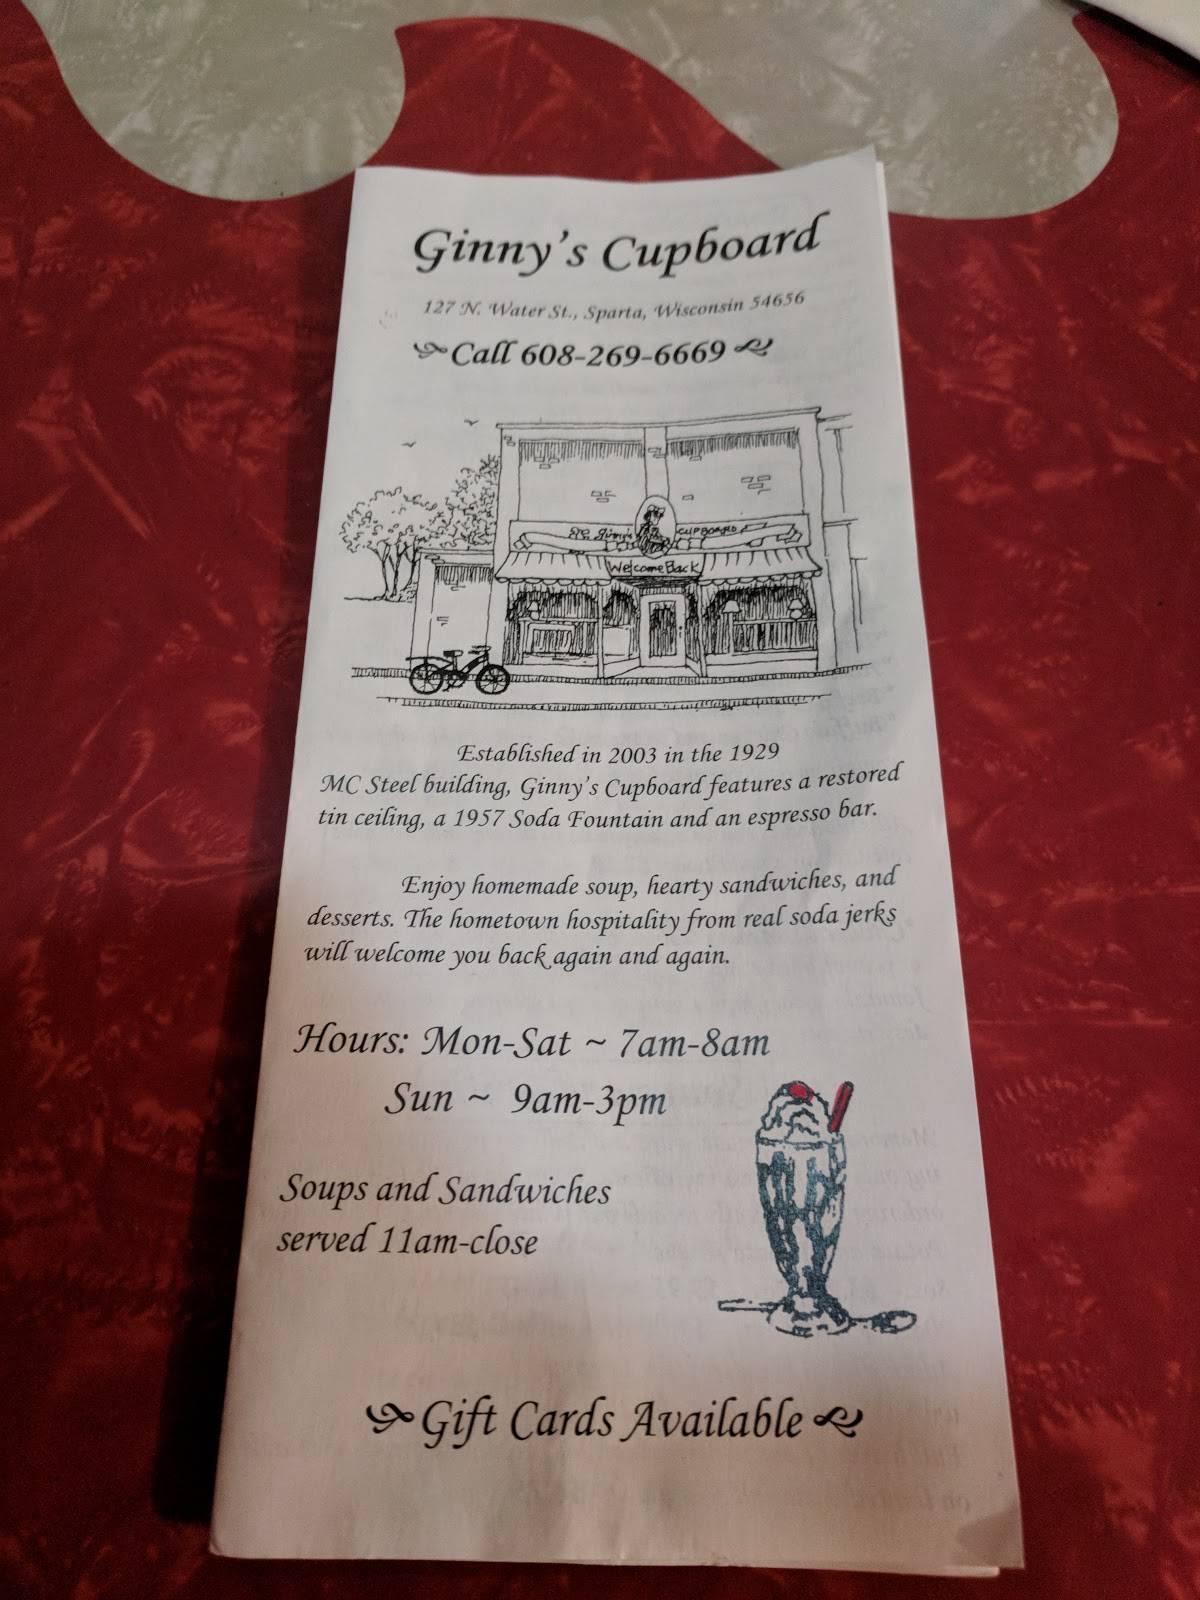 Ginny's Cupboard
127 N. Water St., Sparta, Wisconsin 54656
Call 608-269-6669
Ginny's CUPBOARD
Welcome Back
Established in 2003 in the 1929
MC Steel building, Ginny's Cupboard features a restored
tin ceiling, a 1957 Soda Fountain and an espresso bar.
Enjoy homemade soup, hearty sandwiches, and
desserts. The hometown hospitality from real soda jerks
will welcome you back again and again.
Hours: Mon-Sat ~ 7am-8am
Sun ~ 9am-3pm
Soups and Sandwiches
served 11am-close
Gift Cards Available